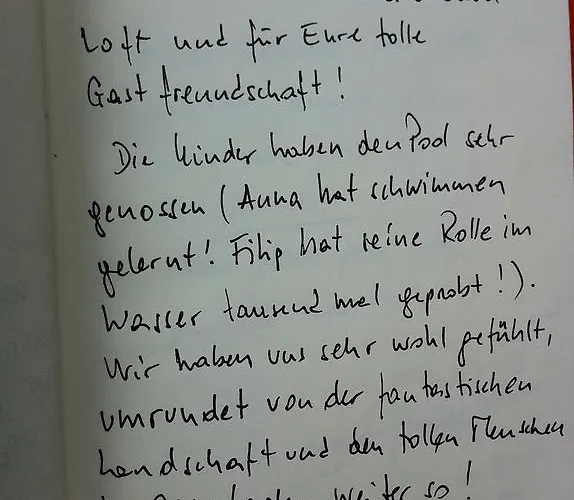 Loft und für Eure tolle
Gastfreundschaft!
Die Kinder haben den Pool sehr
genossen (Anna hat schwimmen
gelernt! Filip hat seine Rolle im
Wasser tausend mal geprobt!).
Wir haben uns sehr wohl gefühlt,
umrundet von der fantastischen
Landschaft und den tollen Menschen
Weiter so!